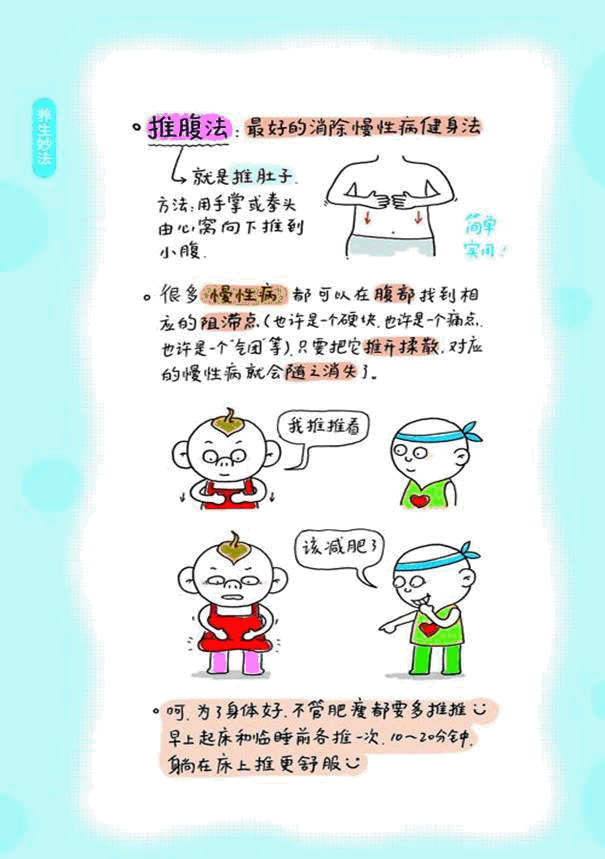 养生妙法
推腹法：最好的消除慢性病健身法
就是推肚子.
方法:用手掌或拳头
由心窝向下推到
小腹.
简单
实用!
很多慢性病 都可以在腹部找到相
应的阻滞点(也许是一个硬快.也许是一个痛点.
也许是一个"气团"等).只要把它推开揉散.对应
的慢性病就会随之消失了.
我推推看
该减肥了
呵.为了身体好.不管肥瘦都要多推推
早上起床和临睡前各推一次.10～20分钟.
躺在床上推更舒服